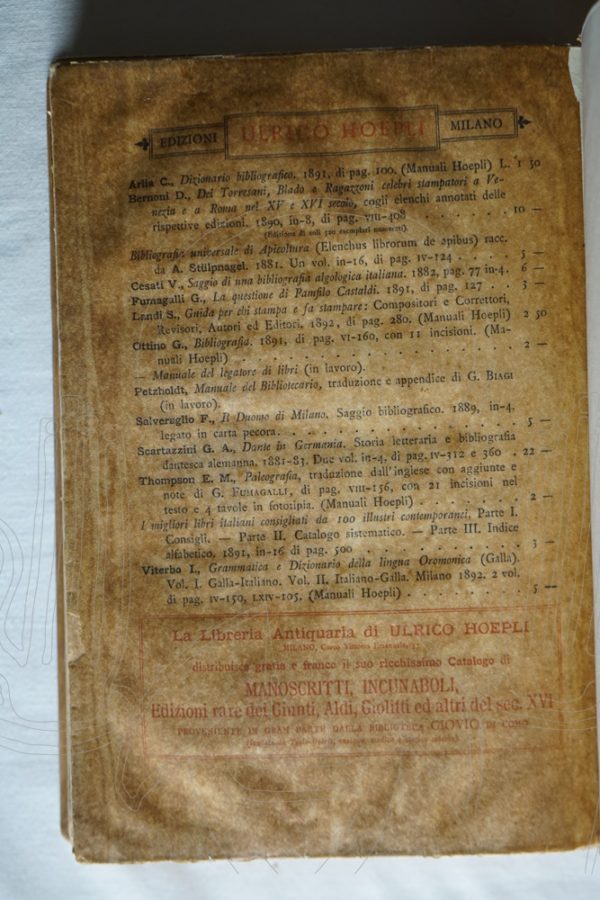 EDIZIONI ULRICO HOEPLI MILANO
Arlia C., Dizionario bibliografico. 1891, di pag. 100. (Manuali Hoepli) L. 1 50
Bernoni D., Dei Torresani, Blado e Ragazzoni celebri stampatori a Ve-
nezia e a Roma nel XV e XVI secolo, cogli elenchi annotati delle
rispettive edizioni. 1890, in-8, di pag. VIII-408 10 —
(Edizione di soli 500 esemplari numerati).
Bibliografia universale di Apicoltura (Elenchus librorum de apibus) racc.
da A. Stülpnagel. 1881. Un vol. in-16, di pag. IV-124 . . . . 5 —
Cesati V., Saggio di una bibliografia algologica italiana. 1882, pag. 77 in-4. 6 —
Fumagalli G., La questione di Pamfilo Castaldi. 1891, di pag. 127 . . 3 —
Landi S., Guida per chi stampa e fa stampare: Compositori e Correttori,
Revisori, Autori ed Editori. 1892, di pag. 280. (Manuali Hoepli) 2 50
Ottino G., Bibliografia. 1891, di pag. VI-160, con 11 incisioni. (Ma-
nuali Hoepli) . . . . . . . . . . . . 2 —
— Manuale del legatore di libri (in lavoro).
Petzholdt, Manuale del Bibliotecario, traduzione e appendice di G. BIAGI
(in lavoro).
Salveraglio F., Il Duomo di Milano. Saggio bibliografico. 1889, in-4,
legato in carta pecora. . . . . . . . . . . 5 —
Scartazzini G. A., Dante in Germania. Storia letteraria e bibliografia
dantesca alemanna. 1881-83. Due vol. in-4, di pag. IV-312 e 360 . 22 —
Thompson E. M., Paleografia, traduzione dall'inglese con aggiunte e
note di G. FUMAGALLI, di pag. VIII-156, con 21 incisioni nel
testo e 4 tavole in fototipia. (Manuali Hoepli) . . . . . . 2 —
I migliori libri italiani consigliati da 100 illustri contemporanei. Parte I.
Consigli. — Parte II. Catalogo sistematico. — Parte III. Indice
alfabetico. 1891, in-16 di pag. 500 . . . . . . . . 3 —
Viterbo I., Grammatica e Dizionario della lingua Oromonica (Galla).
Vol. I. Galla-Italiano. Vol. II. Italiano-Galla. Milano 1892. 2 vol.
di pag. IV-150, LXIV-105. (Manuali Hoepli) . . . . . . . 5 —
La Libreria Antiquaria di ULRICO HOEPLI
MILANO, Corso Vittorio Emanuele,
distribuisce gratis e franco il suo ricchissimo Catalogo di
MANOSCRITTI, INCUNABOLI,
Edizioni rare dei Giunti, Aldi, Giolitti ed altri del sec. XVI
PROVENIENTE IN GRAN PARTE DALLA BIBLIOTECA GIOVIO DI COMO